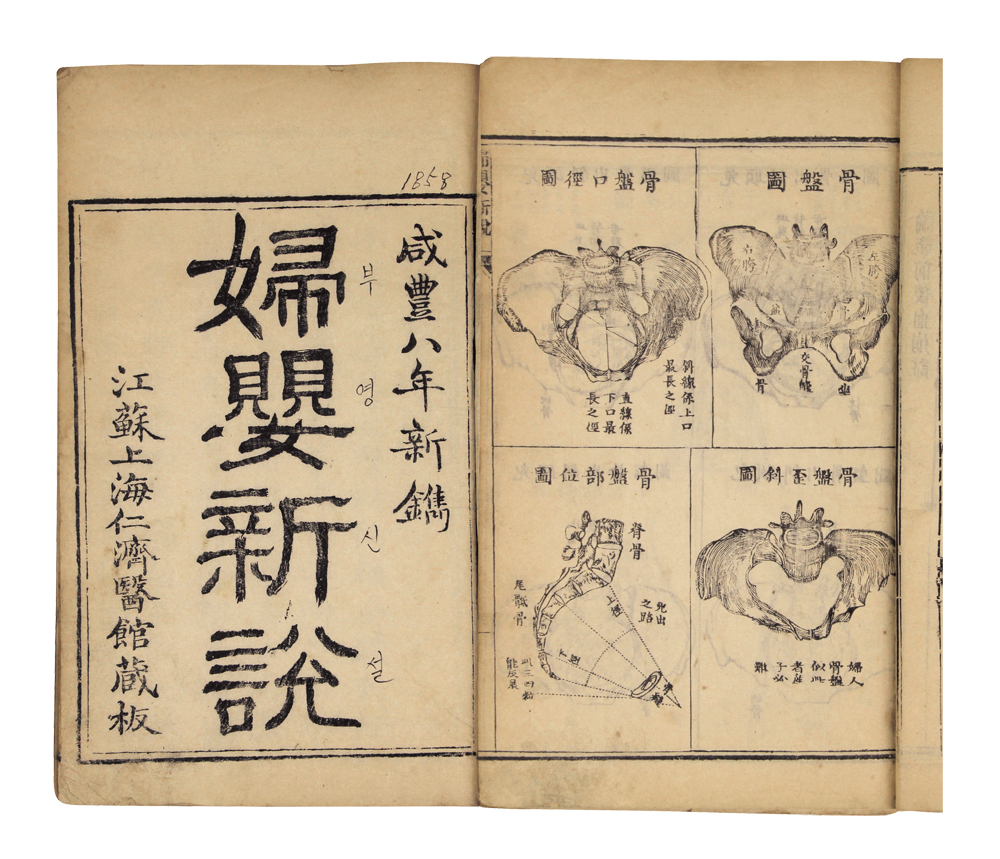 1858
咸豐八年新鐫
婦嬰新說
부영신설
江蘇上海仁濟醫館蔵板
骨盤圖
右胯
左胯
交骨
骨
骨盤口徑圖
斜線係上口
最長之徑
直線係
下口最
長之徑
骨盤歪斜圖
婦人
骨盤
似此
者產
子必
難
骨盤部位圖
脊骨
兒出
之路
上徑
下徑
尾骶骨
此三四粉
能反展